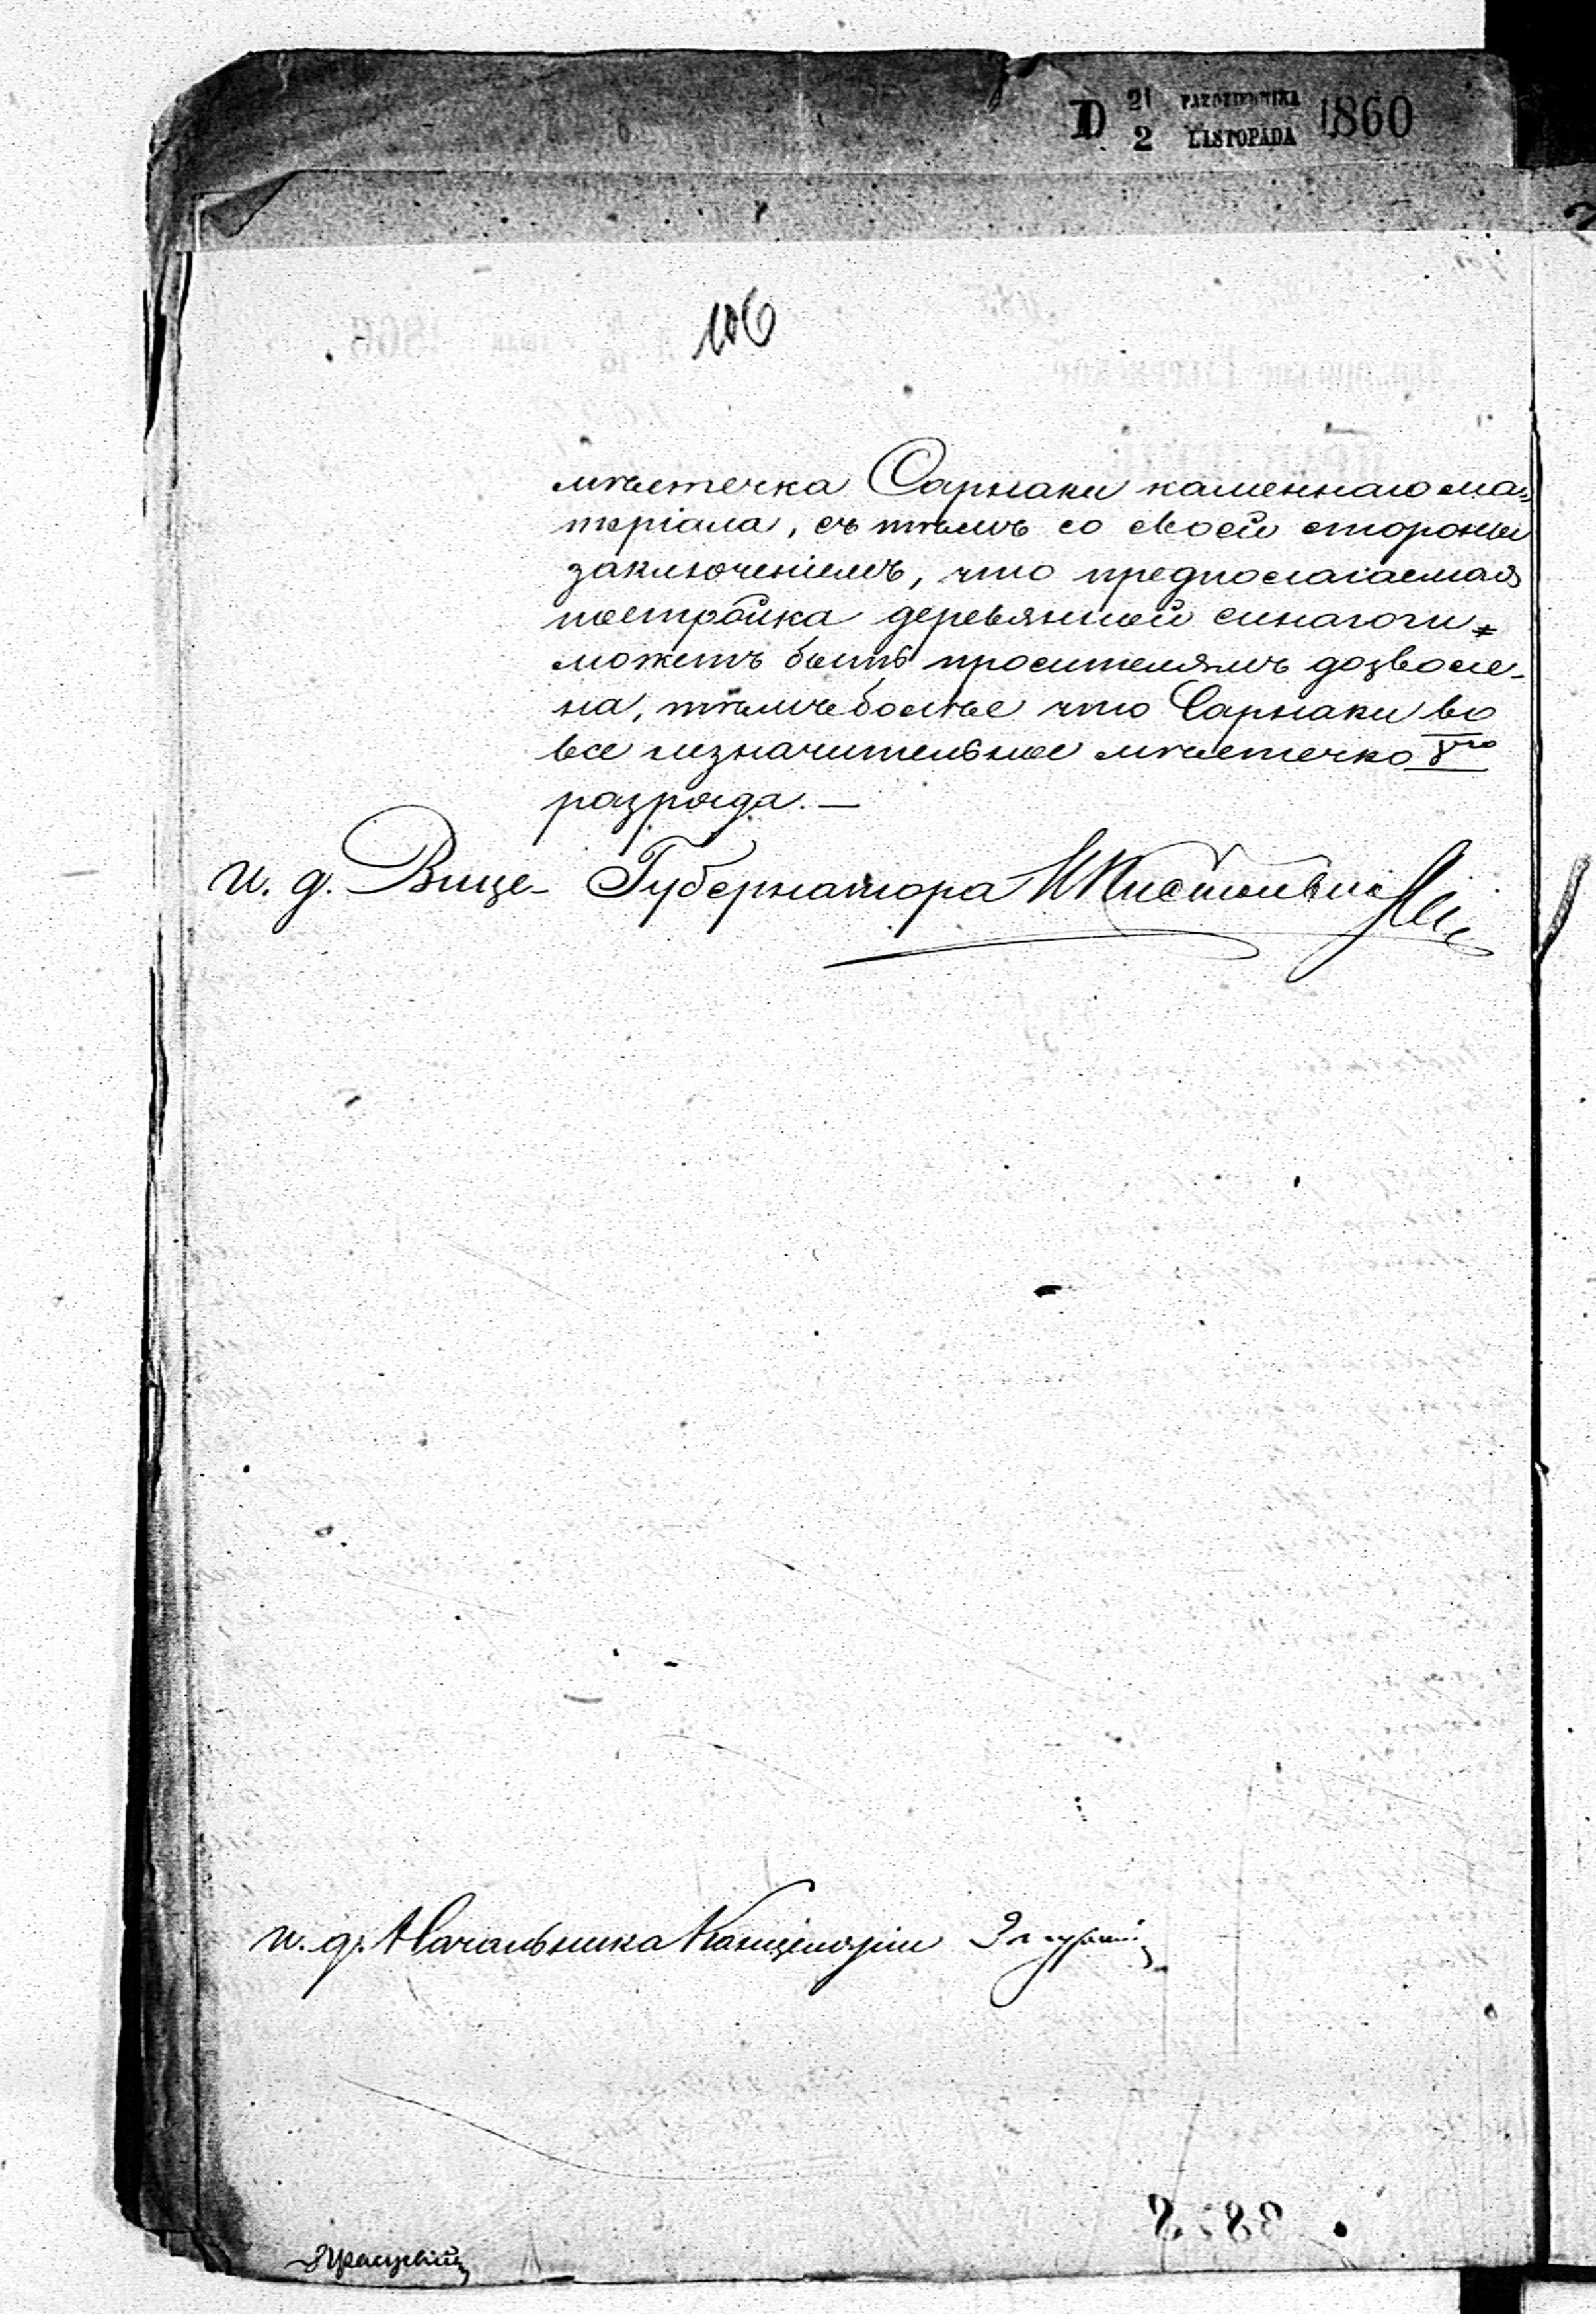 D 21 PAŹDZIERNIKA 1860
2 LISTOPADA
106
мѣстечка Сарнаки каменнаго ма=
теріала, съ тѣмъ со своей стороны
заключеніемъ, что предполагаемая
постройка деревянной синагоги
можетъ быть просителямъ дозволе-
на, тѣмъ болѣе что Сарнаки во
все незначительное мѣстечко V го
разряда. —
И. д. Вице-Губернатора
И. д. Начальника Канцеляріи